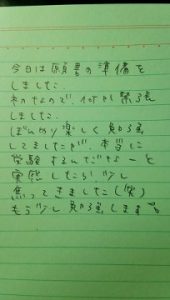 今日は願書の準備を
しました。
初めてなので、何だか緊張
しました。
ぼんやり楽しく勉強
してましたが、本当に
受験するんだなーと
実感したら、少し
焦ってきました(笑)
もう少し勉強します。